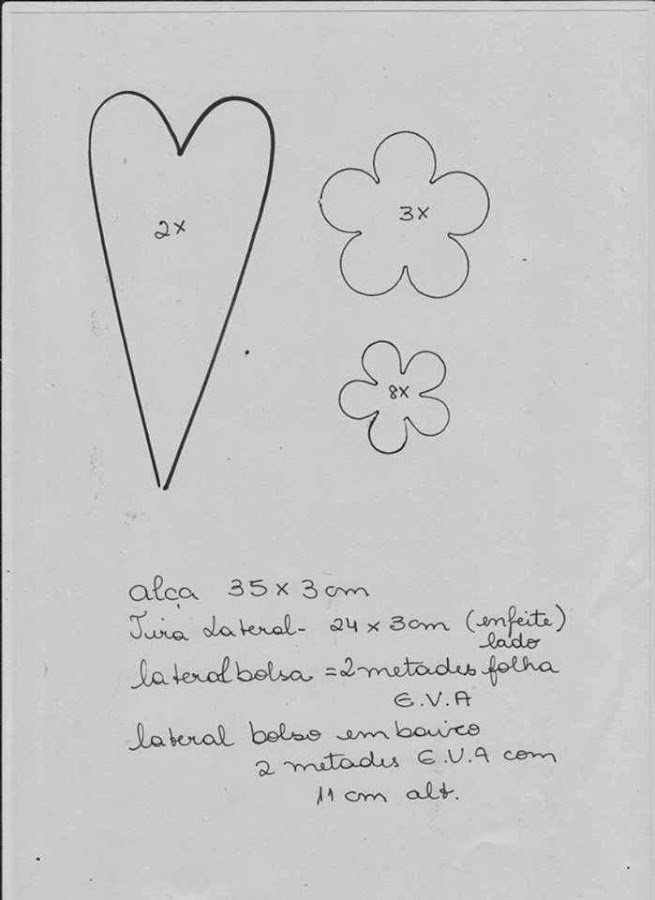 2x
3x
8x
alça 35 x 3 cm
Tira Lateral- 24 x 3cm (enfeite)
lado
lateral bolsa = 2 metades folha
E.V.A
lateral bolso em baixo
2 metades E.V.A com
11 cm alt.